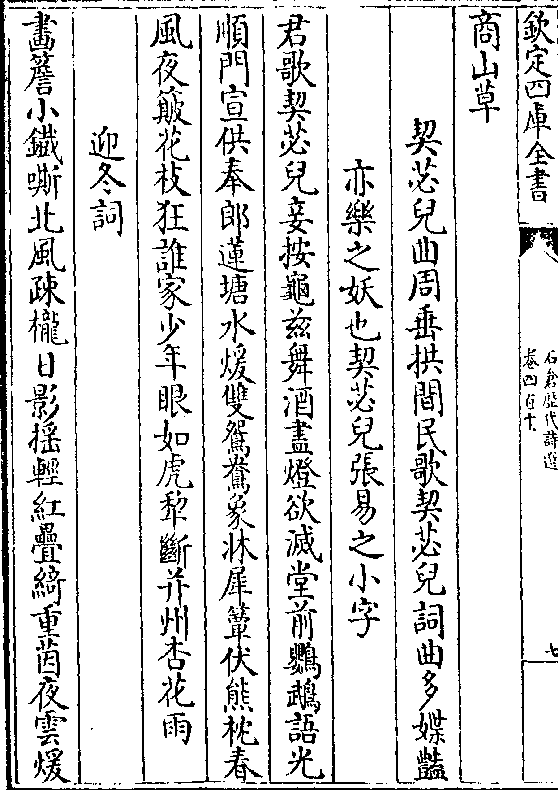 欽定四庫全書
石倉歷代詩選
卷四百十
七
商山草
契苾兒曲周垂拱間民歌契苾兒詞曲多媟豔
亦樂之妖也契苾兒張易之小字
君歌契苾兒妾按龜茲舞酒盡燈欲滅堂前鸚鵡語光
順門宣供奉郎蓮塘水煖雙鴛鴦象牀犀簟伏熊枕春
風夜簸花枝狂誰家少年眼如虎犂斷并州杏花雨
迎冬詞
畫簷小鐵嘶北風疎櫳日影揺輕紅疊綺重茵夜雲煖